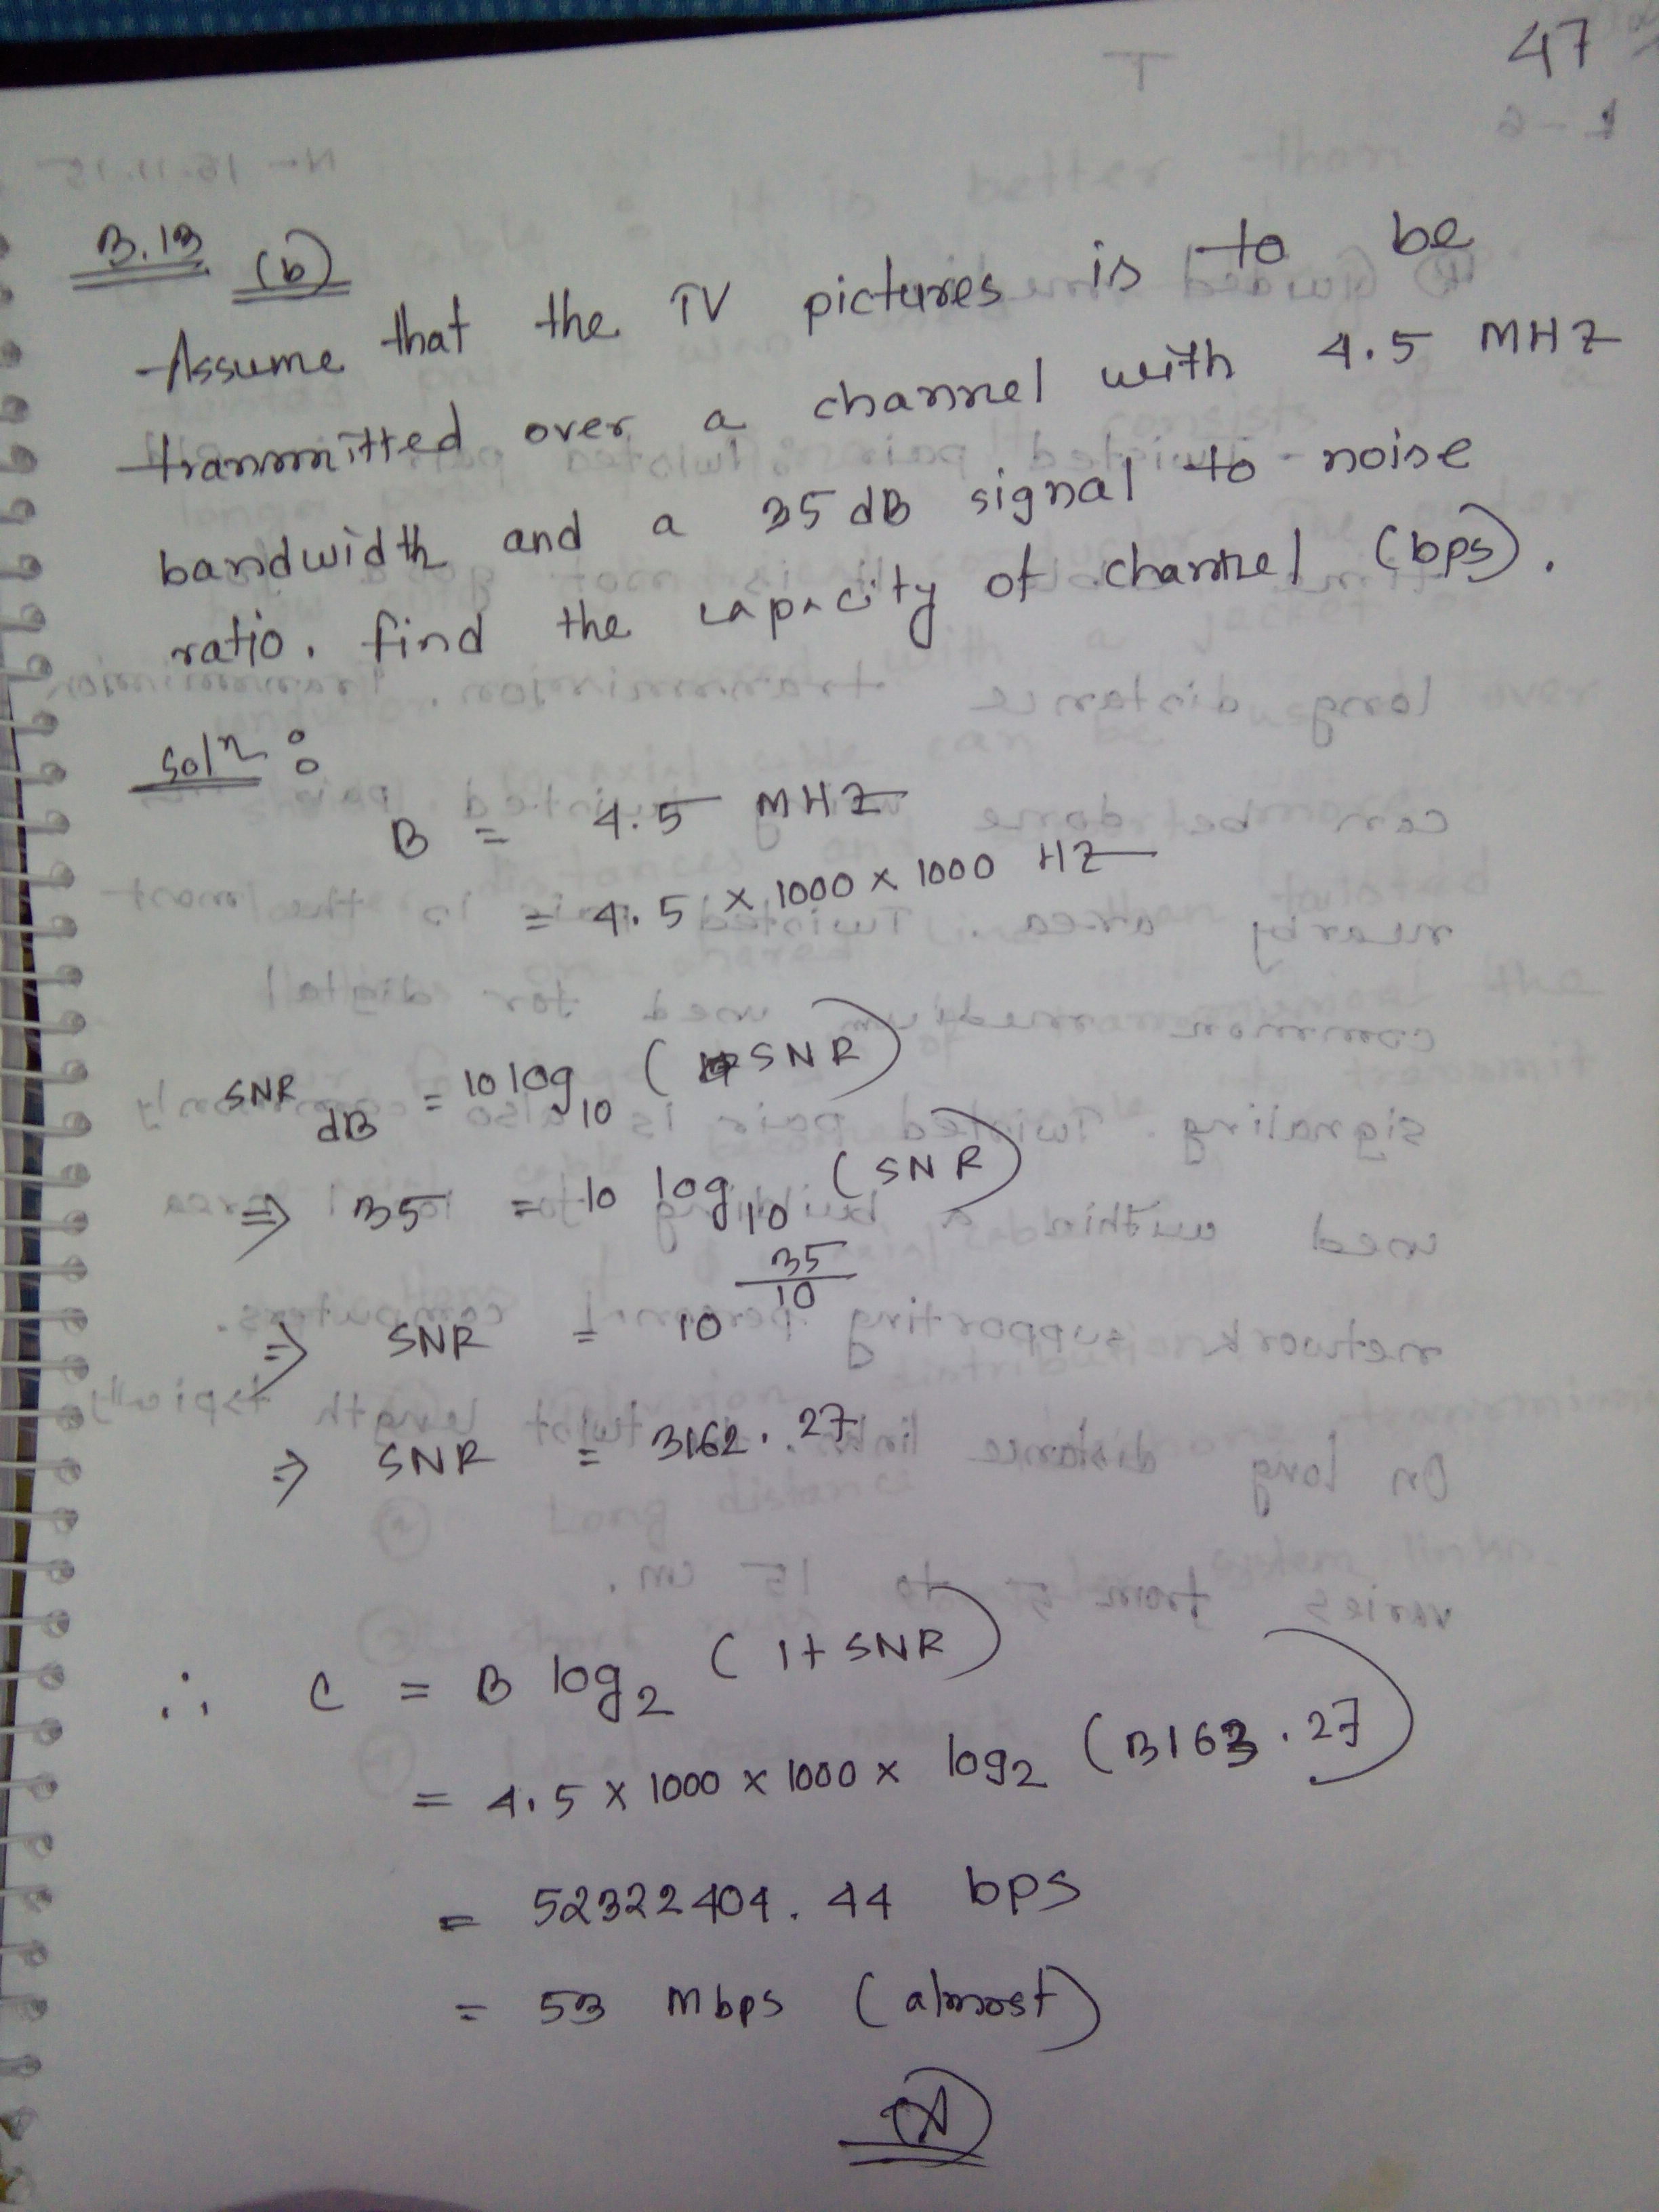 47
3.13 (b)
Assume that the TV pictures is to be
transmitted over a channel with 4.5 MHZ
bandwidth and a 35 dB signal to noise
ratio. find the capacity of channel (bps).
Solⁿ :
B = 4.5 MHZ
= 4.5 × 1000 × 1000 HZ
SNR dB = 10 log₁₀ (SNR)
⇒ 35 = 10 log₁₀ (SNR)
⇒ SNR = 10^(35/10)
⇒ SNR = 3162.27
∴ C = B log₂ (1+SNR)
= 4.5 × 1000 × 1000 × log₂ (3163.27)
= 52322404.44 bps
= 53 Mbps (almost)